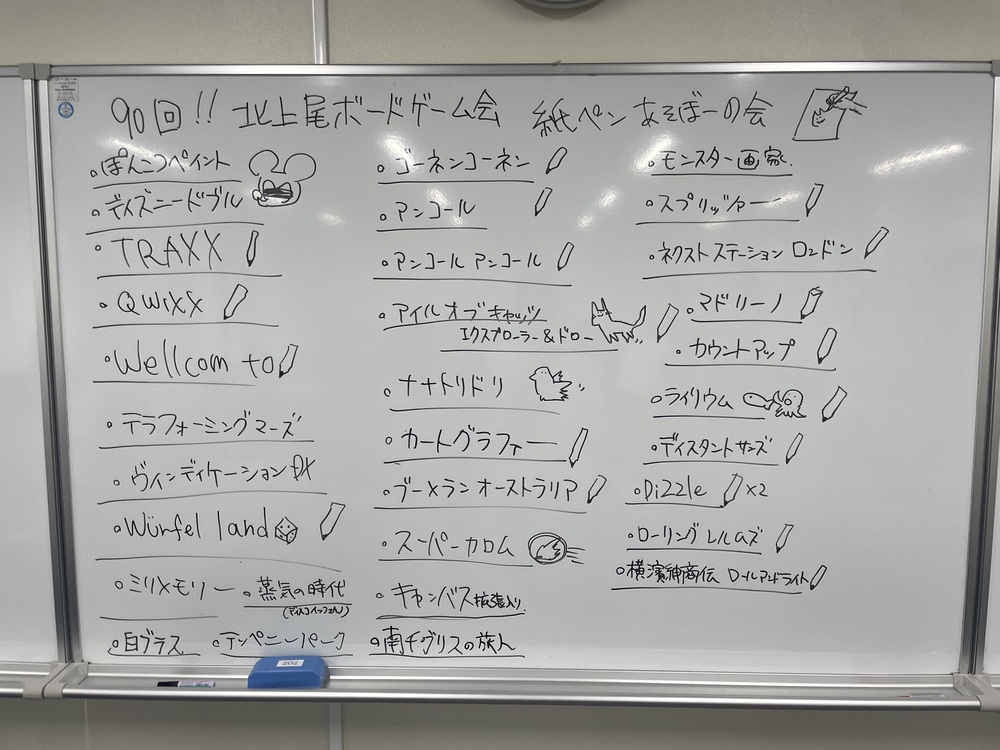 90回!! 北上尾ボードゲーム会 紙ペンあそぼーの会
ぽんこつペイント
ディズニードブル
TRAXX
QWIXX
Wellcom to
テラフォーミングマーズ
ヴィンディケーション DX
Würfel land
ミリメモリー
蒸気の時代
自ブラス
テンペニーパーク
ゴーネンコーネン
アンコール
アンコール アンコール
アイルオブキャッツ
エクスプローラー&ドロー
ナナトリドリ
カートグラファー
ブーメラン オーストラリア
スーパーカロム
キャンバス拡張入り
南チグリスの旅人
モンスター画家
スプリッツァー
ネクストステーション ロンドン
マドリーノ
カウントアップ
ライリウム
ディスタントサンズ
Dizzle x2
ローリングレルムズ
横濱紳商伝 ロールアンドライト
202